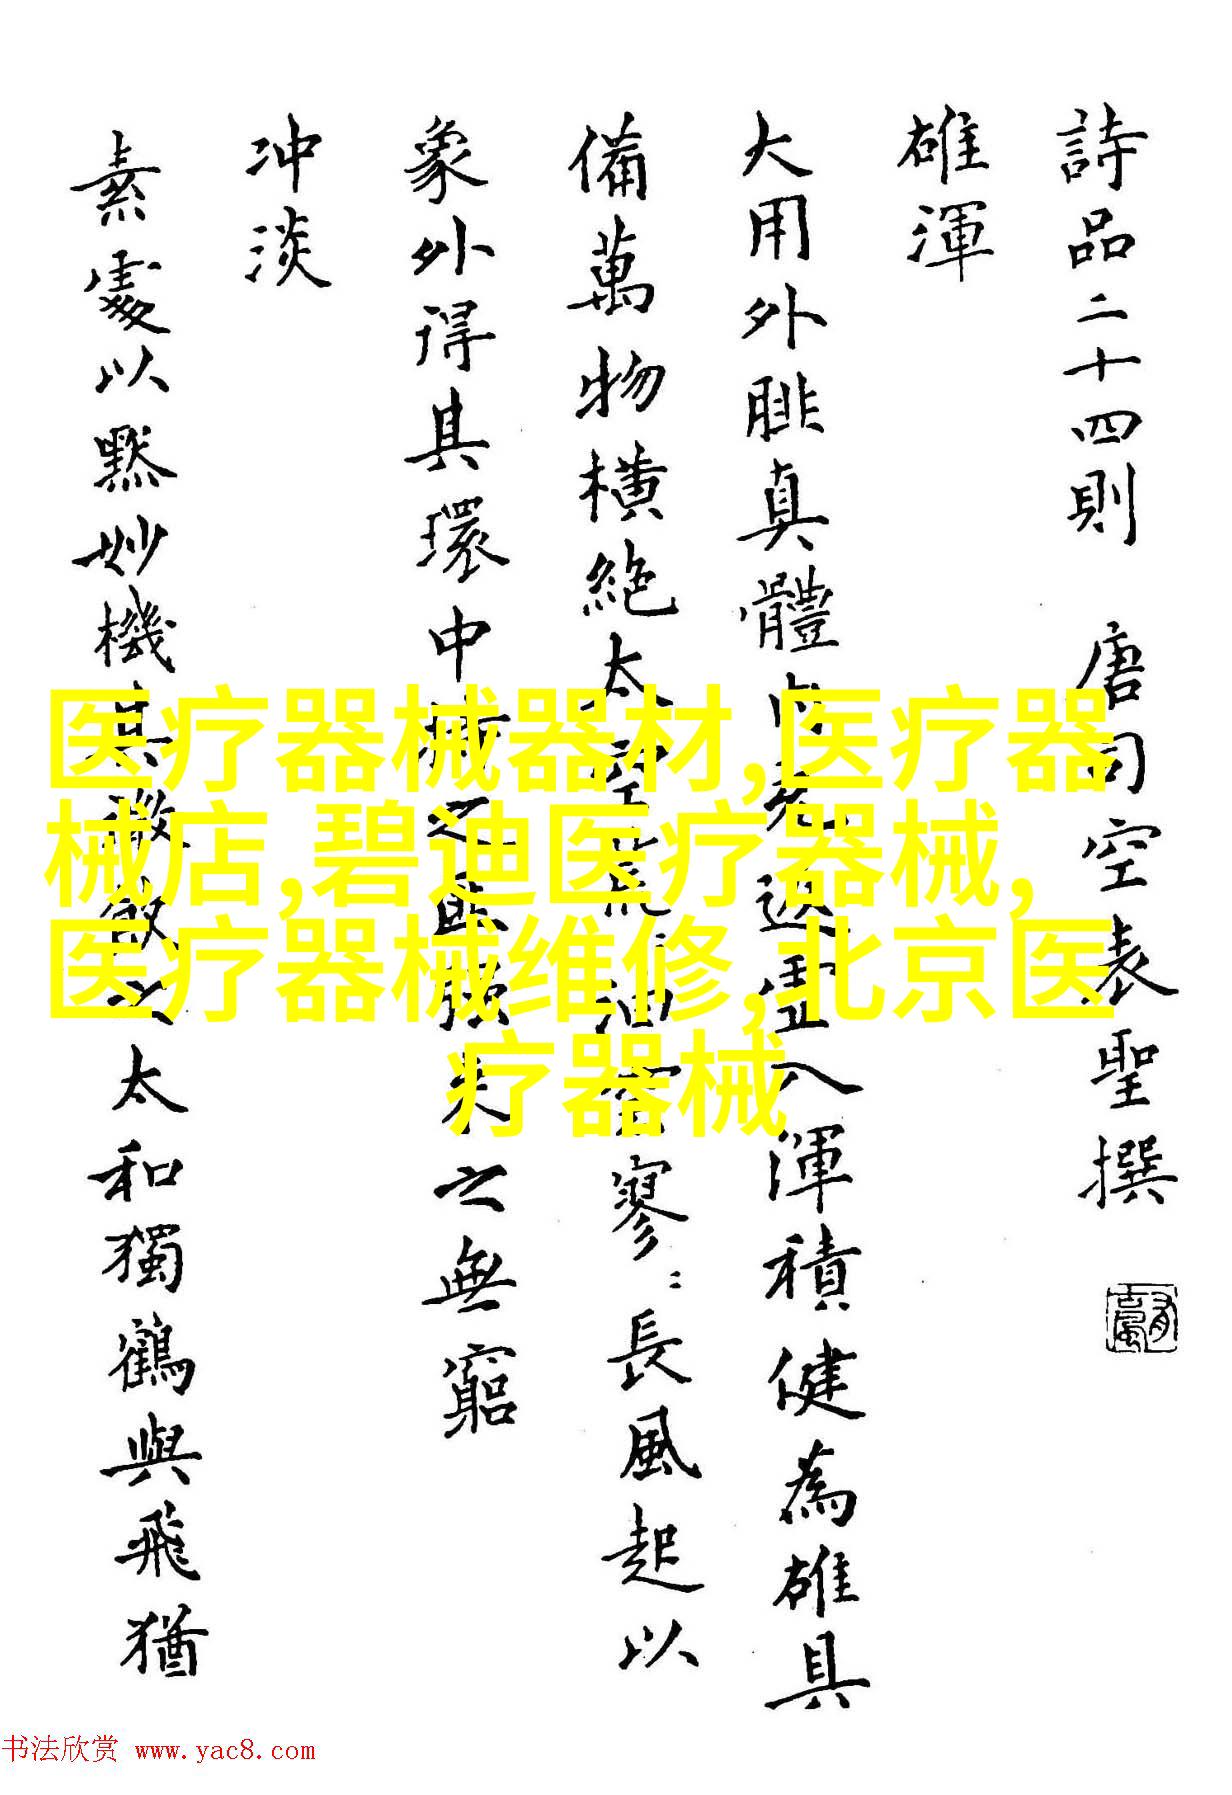 詩品二十四則 唐司空表聖撰
雄渾
大用外腓真體內充返虛入渾積健為雄具
備萬物橫絕太空荒〻油雲寥〻長風超以
象外得其環中持之匪强来之無窮
冲淡
素處以默妙機其微飲之太和獨鶴與飛猶
医疗器械器材,医疗器
械店,碧迪医疗器械,
医疗器械维修,北京医
疗器械
书法欣赏 www.yac8.com